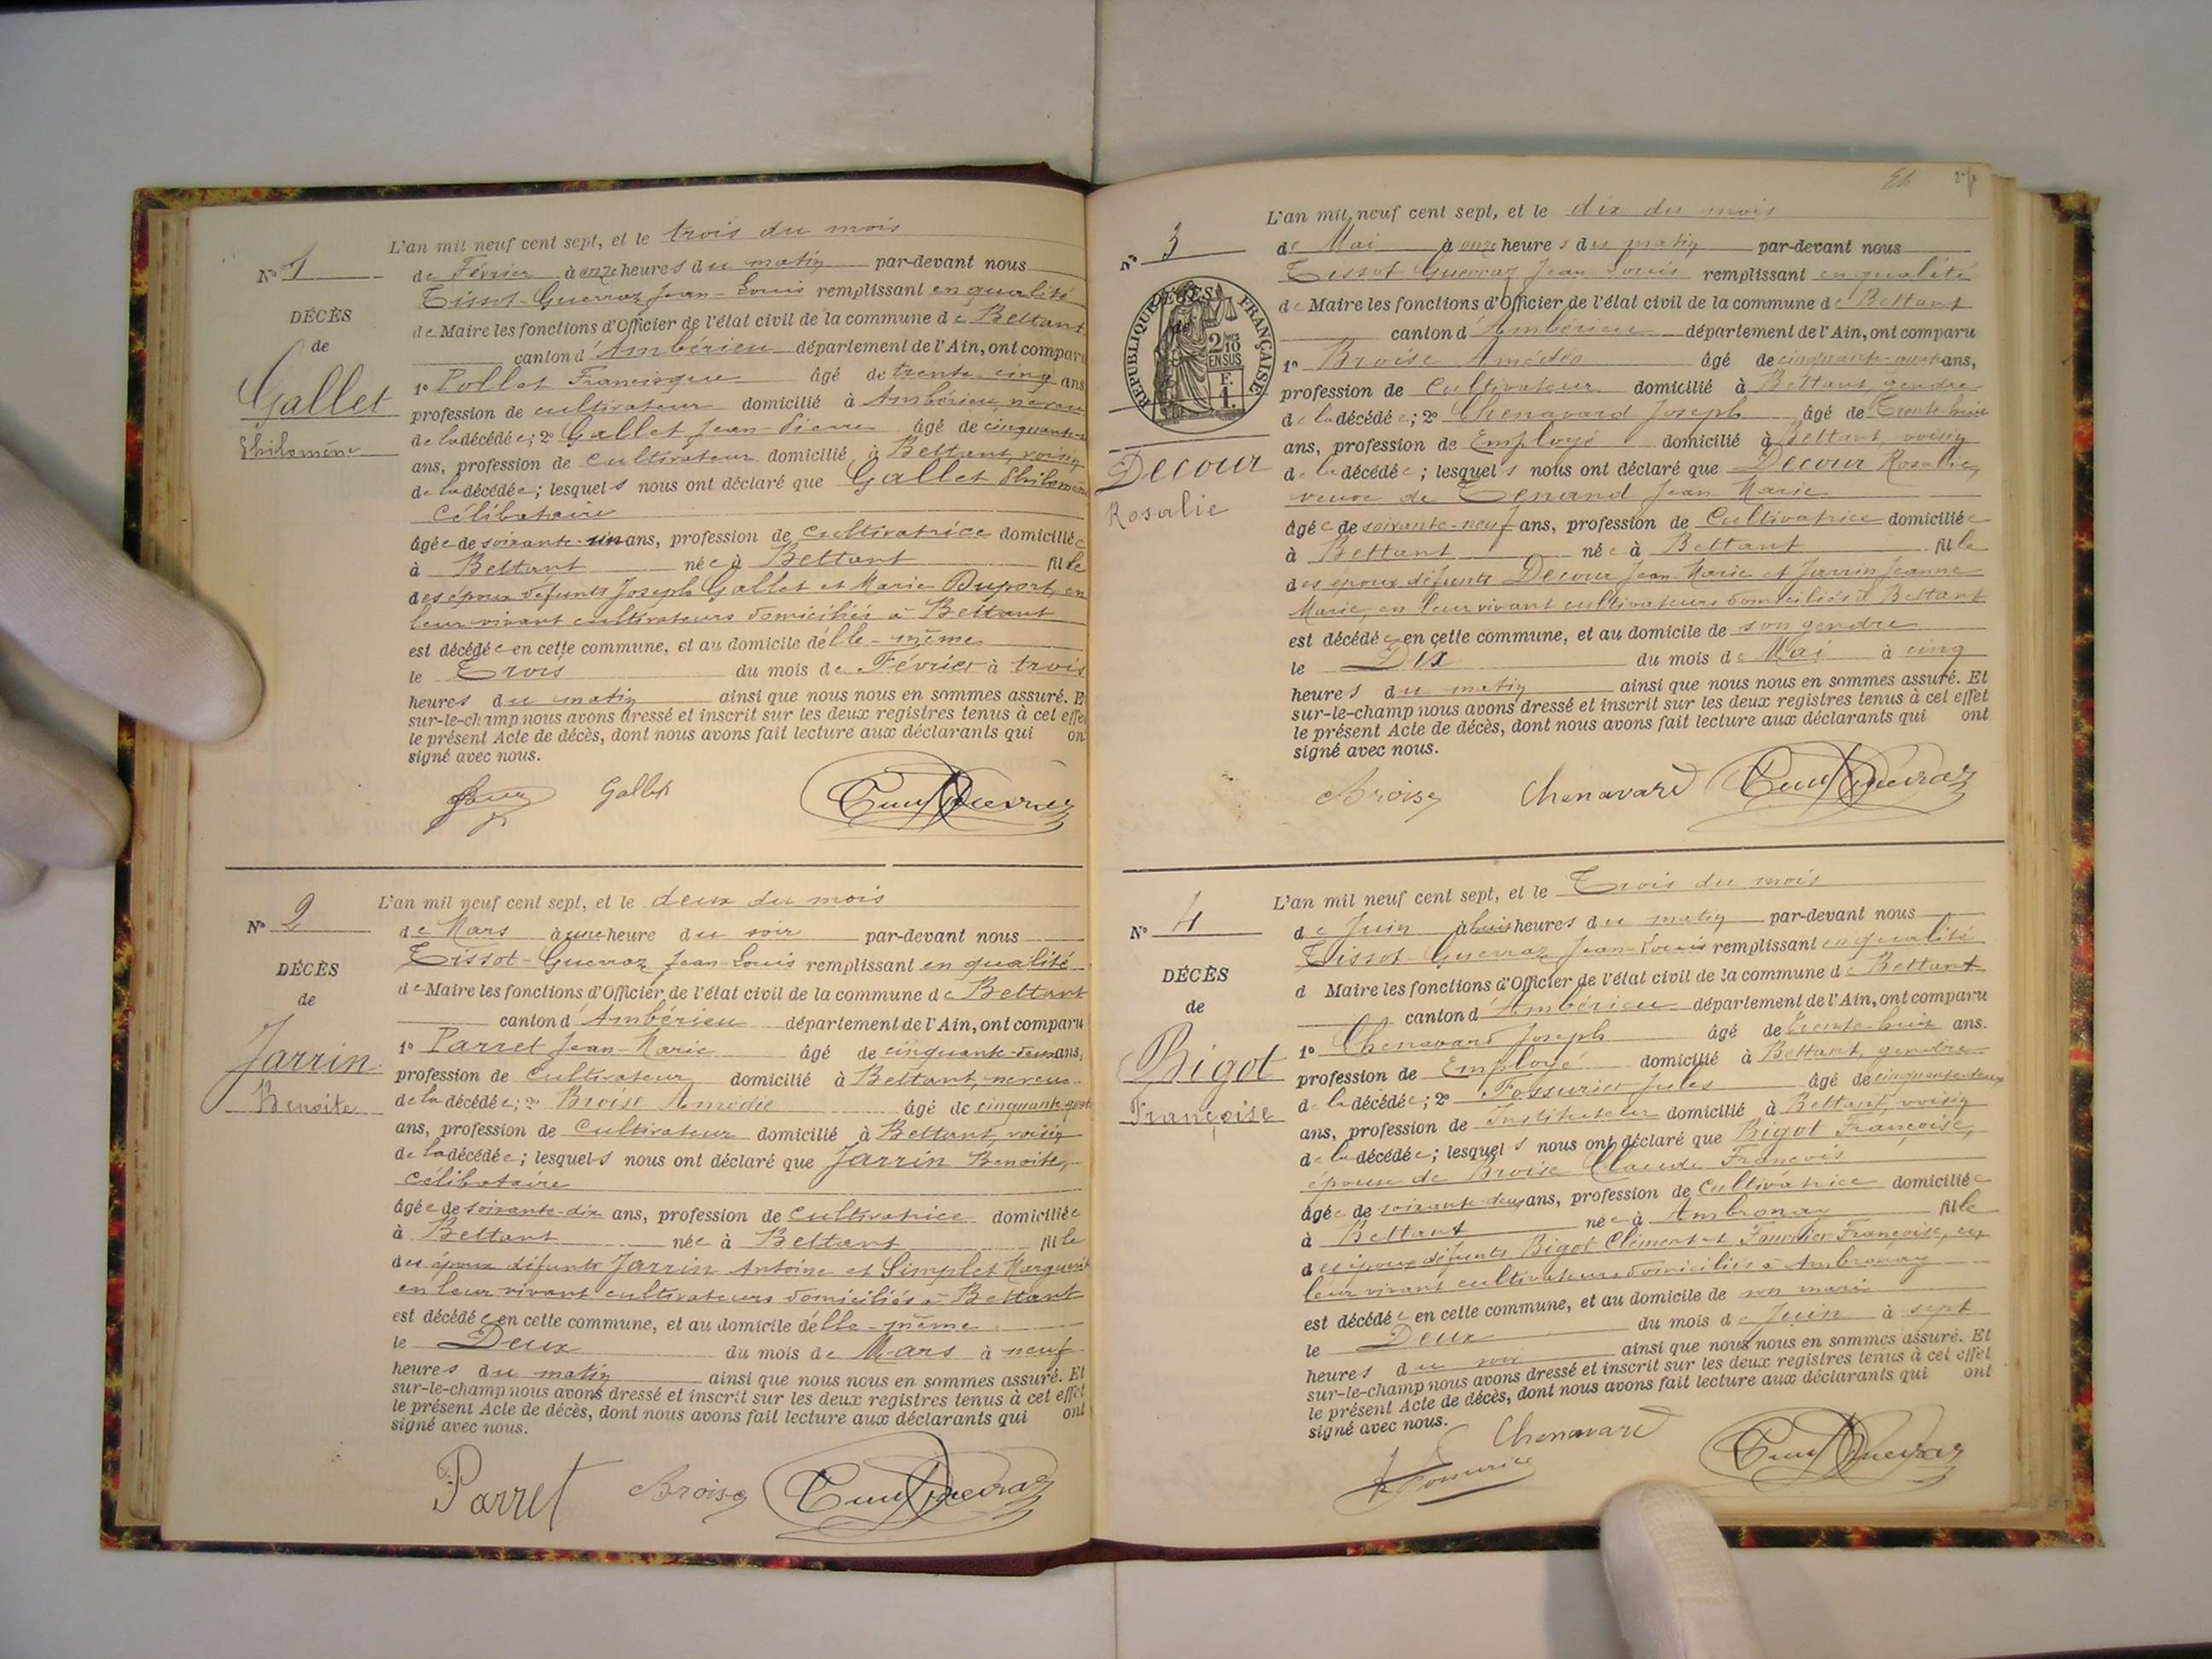 L'an mil neuf cent sept, et le trois du mois
N° 1
de Février à onze heures du matin par-devant nous
Tissot-Guerraz Jean-Louis remplissant en qualité
DÉCÈS
de Maire les fonctions d'Officier de l'état civil de la commune de Bettant
de
canton d'Ambérieu département de l'Ain, ont compar
Gallet
1° Pollet Francisque âgé de trente cinq ans
profession de cultivateur domicilié à Ambérieu, neveu
Philomène
de la décédée; 2° Gallet Jean-Pierre âgé de cinquante
ans, profession de cultivateur domicilié à Bettant, voisin
de la décédée; lesquels nous ont déclaré que Gallet Philomène
Célibataire
âgée de soixante-un ans, profession de cultivatrice domiciliée
à Bettant née à Bettant fille
des époux défunts Joseph Gallet et Marie Duport, en
leur vivant cultivateurs domiciliés à Bettant
est décédée en cette commune, et au domicile d'elle-même
le Trois du mois de Février à trois
heures du matin ainsi que nous nous en sommes assuré. E
sur-le-champ nous avons dressé et inscrit sur les deux registres tenus à cet effe
le présent Acte de décès, dont nous avons fait lecture aux déclarants qui on
signé avec nous.
Gallet
L'an mil neuf cent sept, et le deux du mois
N° 2
de Mars à une heure du soir par-devant nous
Tissot-Guerraz Jean-Louis remplissant en qualité
DÉCÈS
de Maire les fonctions d'Officier de l'état civil de la commune de Bettant
de
canton d'Ambérieu département de l'Ain, ont comparu
Jarrin
1° Parret Jean-Marie âgé de cinquante-deux ans,
profession de Cultivateur domicilié à Bettant, neveu
Benoite
de la décédée; 2° Broise Amédée âgé de cinquante quatre
ans, profession de Cultivateur domicilié à Bettant, voisin
de la décédée; lesquels nous ont déclaré que Jarrin Benoite,
Célibataire
âgée de soixante-dix ans, profession de Cultivatrice domiciliée
à Bettant née à Bettant fille
des époux défunts Jarrin Antoine et Simplet Marguerite
en leur vivant cultivateurs domiciliés à Bettant
est décédée en cette commune, et au domicile d'elle-même
le Deux du mois de Mars à neuf
heures du matin ainsi que nous nous en sommes assuré. Et
sur-le-champ nous avons dressé et inscrit sur les deux registres tenus à cet effet
le présent Acte de décès, dont nous avons fait lecture aux déclarants qui ont
signé avec nous.
Parret Broise
L'an mil neuf cent sept, et le dix du mois
N° 3
de Mai à onze heures du matin par-devant nous
Tissot Guerraz Jean Louis remplissant en qualité
de Maire les fonctions d'Officier de l'état civil de la commune de Bettant
canton d'Ambérieu département de l'Ain, ont comparu
RÉPUBLIQUE FRANÇAISE
2/10 EN SUS
F.
1.
1° Broise Amédée âgé de cinquante-quatre ans,
profession de Cultivateur domicilié à Bettant, gendre
de la décédée; 2° Chenavard Joseph âgé de Trente-huit
ans, profession de Employé domicilié à Bettant, voisin
Decour
de la décédée; lesquels nous ont déclaré que Decour Rosalie,
veuve de Tenand Jean Marie
Rosalie
âgée de soixante-neuf ans, profession de Cultivatrice domiciliée
à Bettant née à Bettant fille
des époux défunts Decour Jean Marie et Jarrin Jeanne
Marie, en leur vivant cultivateurs domiciliés à Bettant
est décédée en cette commune, et au domicile de son gendre
le Dix du mois de Mai à cinq
heures du matin ainsi que nous nous en sommes assuré. Et
sur-le-champ nous avons dressé et inscrit sur les deux registres tenus à cet effet
le présent Acte de décès, dont nous avons fait lecture aux déclarants qui ont
signé avec nous.
Broise Chenavard
L'an mil neuf cent sept, et le Trois du mois
N° 4
de Juin à huit heures du matin par-devant nous
Tissot-Guerraz Jean-Louis remplissant en qualité
DÉCÈS
d Maire les fonctions d'Officier de l'état civil de la commune de Bettant
de
canton d'Ambérieu département de l'Ain, ont comparu
Bigot
1° Chenavard Joseph âgé de trente-huit ans.
profession de Employé domicilié à Bettant, gendre
Françoise
de la décédée; 2° Fossurier Jules âgé de cinquante-deux
ans, profession de Instituteur domicilié à Bettant, voisin
de la décédée; lesquels nous ont déclaré que Bigot Françoise,
épouse de Broise Claude François
âgée de soixante-deux ans, profession de Cultivatrice domiciliée
à Bettant née à Ambronay fille
des époux défunts Bigot Clément et Fournier Françoise, en
leur vivant cultivateurs domiciliés à Ambronay
est décédée en cette commune, et au domicile de son mari
le Deux du mois de Juin à sept
heures du soir ainsi que nous nous en sommes assuré. Et
sur-le-champ nous avons dressé et inscrit sur les deux registres tenus à cet effet
le présent Acte de décès, dont nous avons fait lecture aux déclarants qui ont
signé avec nous.
Chenavard
Fossurier